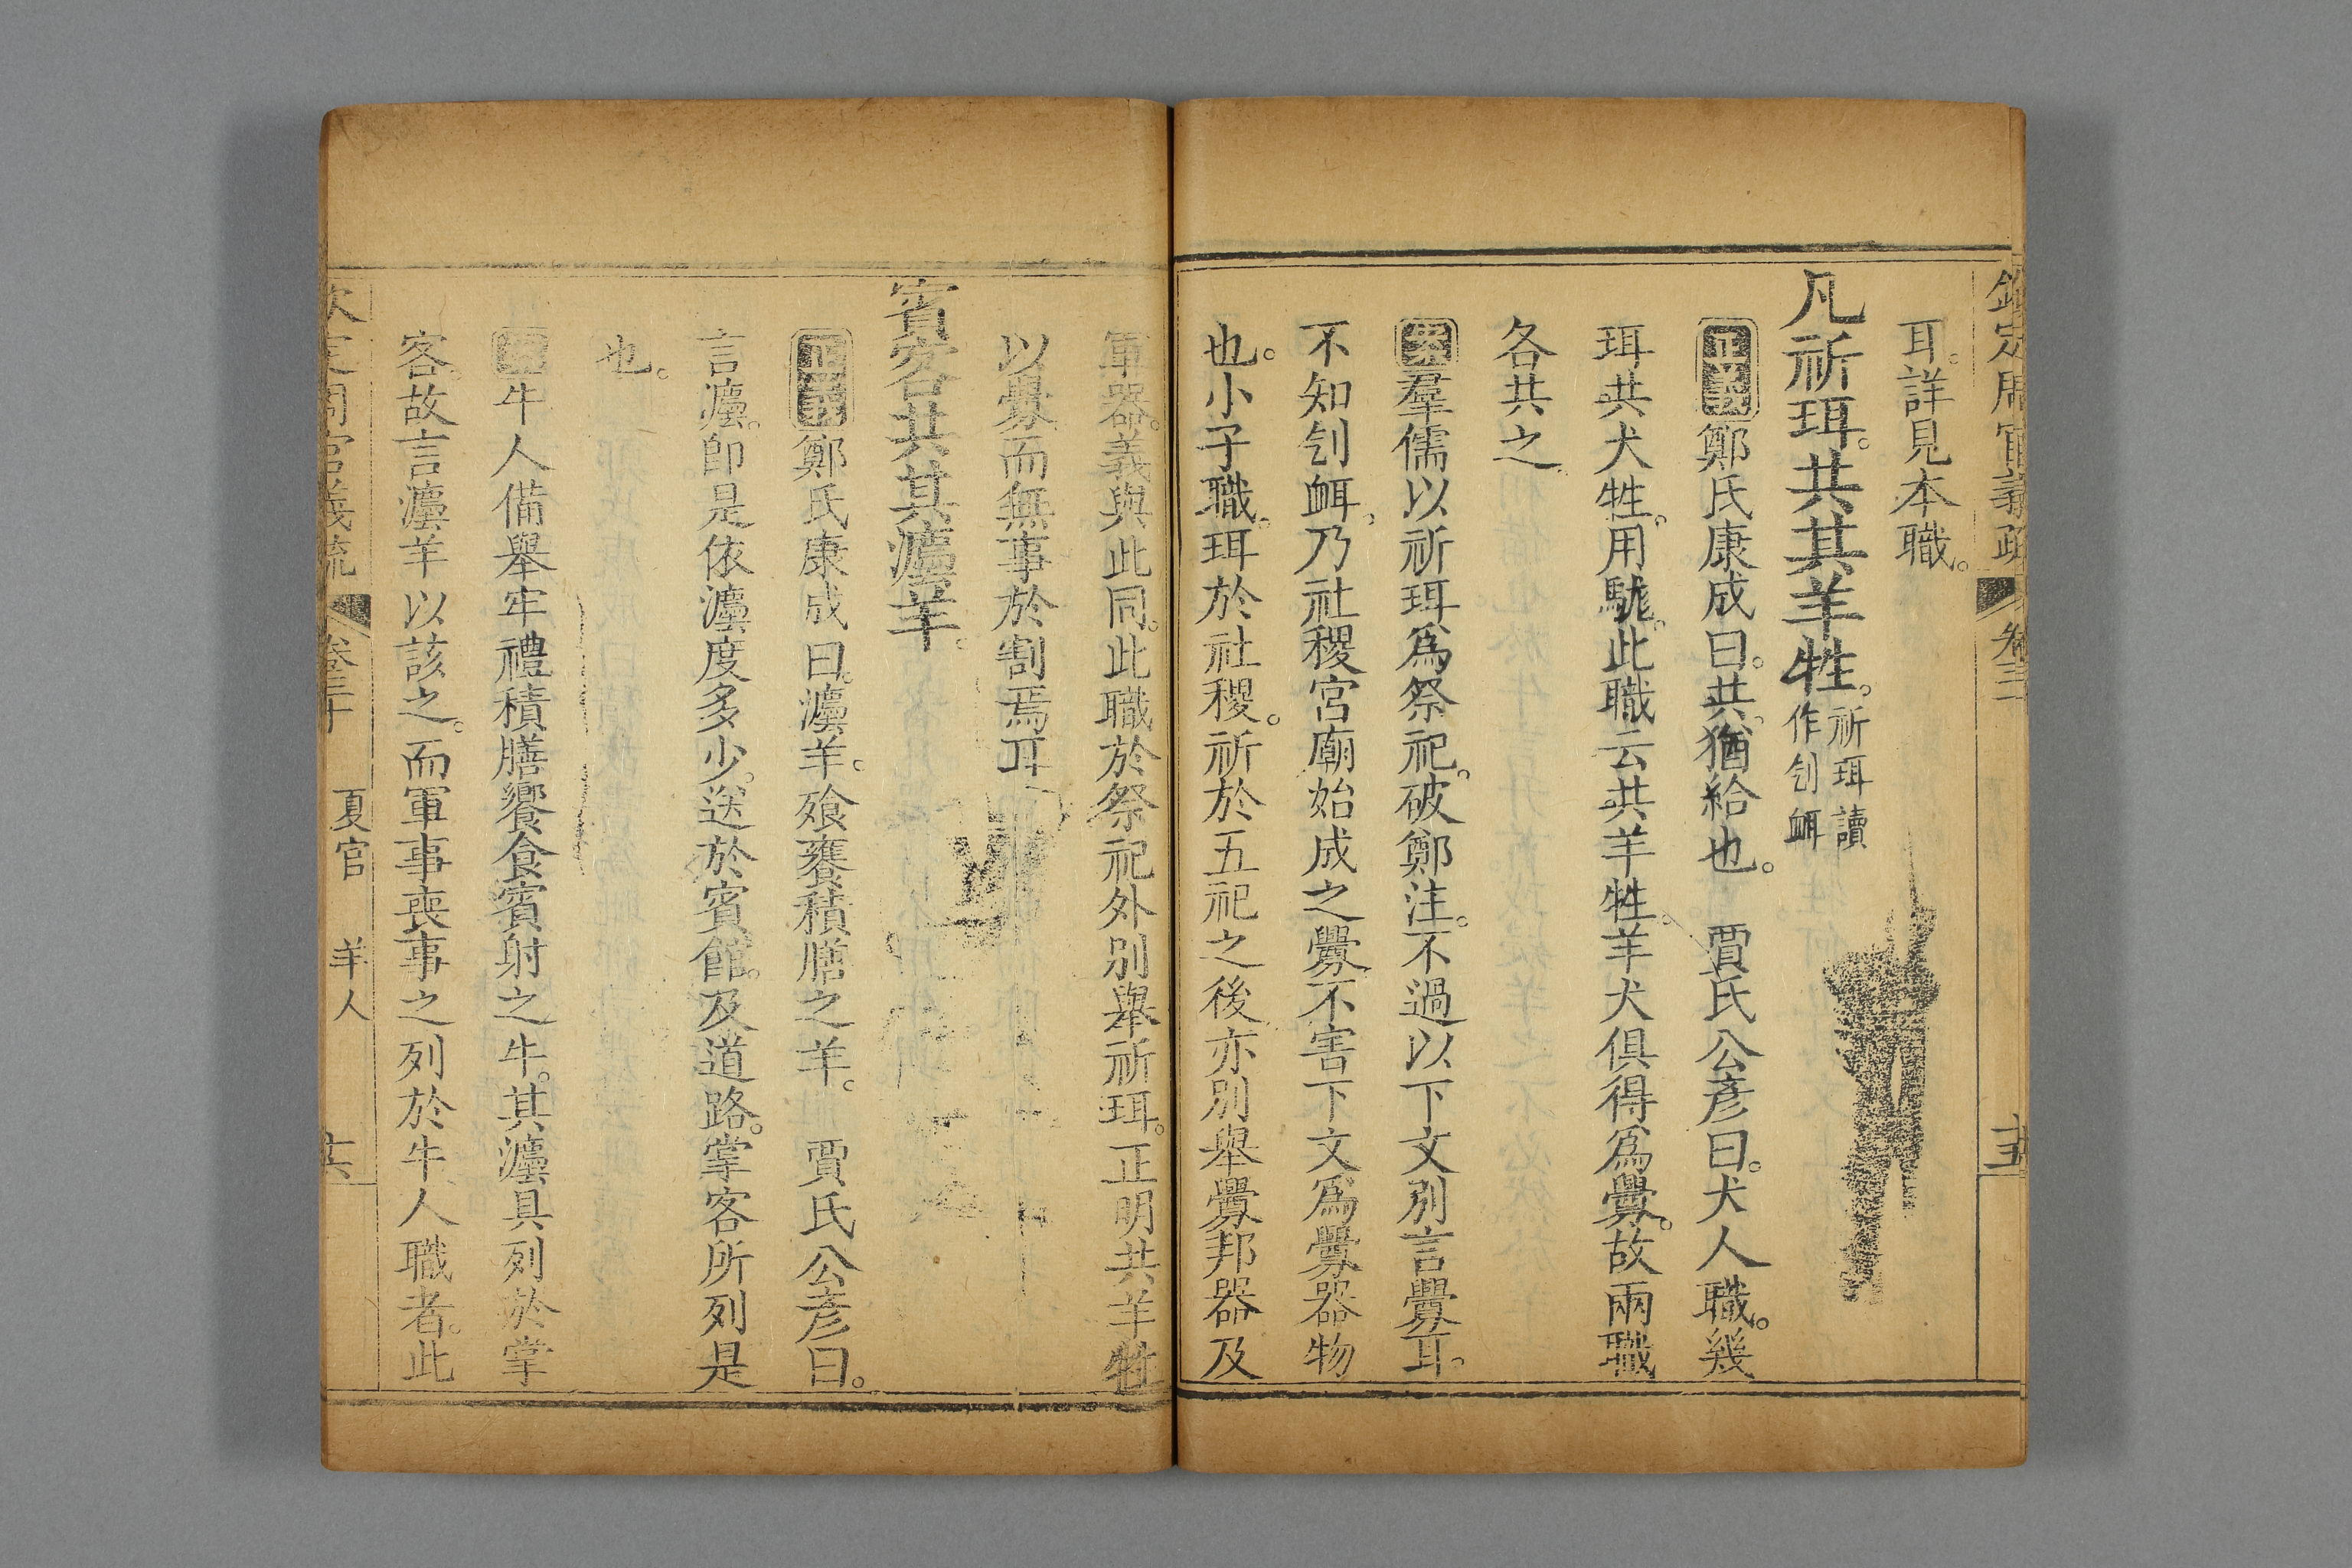 欽定周官義疏 卷三十 十五
耳。詳見本職。
凡祈珥。共其羊牲。祈珥讀作刉衈
正義鄭氏康成曰。共。猶給也。 賈氏公彥曰。犬人職。幾
珥共犬牲。用駹。此職云共羊牲。羊犬俱得爲釁。故兩職
各共之
案羣儒以祈珥爲祭祀。破鄭注。不過以下文別言釁耳。
不知刉衈。乃社稷宮廟始成之釁。不害下文爲釁器物
也。小子職。珥於社稷。祈於五祀之後。亦別舉釁邦器及
軍器。義與此同。此職於祭祀外別舉祈珥。正明共羊牲
以釁。而無事於割焉耳
賓客共其灋羊。
正義鄭氏康成曰。灋羊。飧饔積膳之羊。 賈氏公彥曰。
言灋。卽是依灋度多少。送於賓館。及道路。掌客所列是
也。
案牛人備舉牢禮積膳饗食賓射之牛。其灋具列於掌
客。故言灋羊以該之。而軍事喪事之列於牛人職者。此
欽定周官義疏 卷三十 夏官 羊人 十六